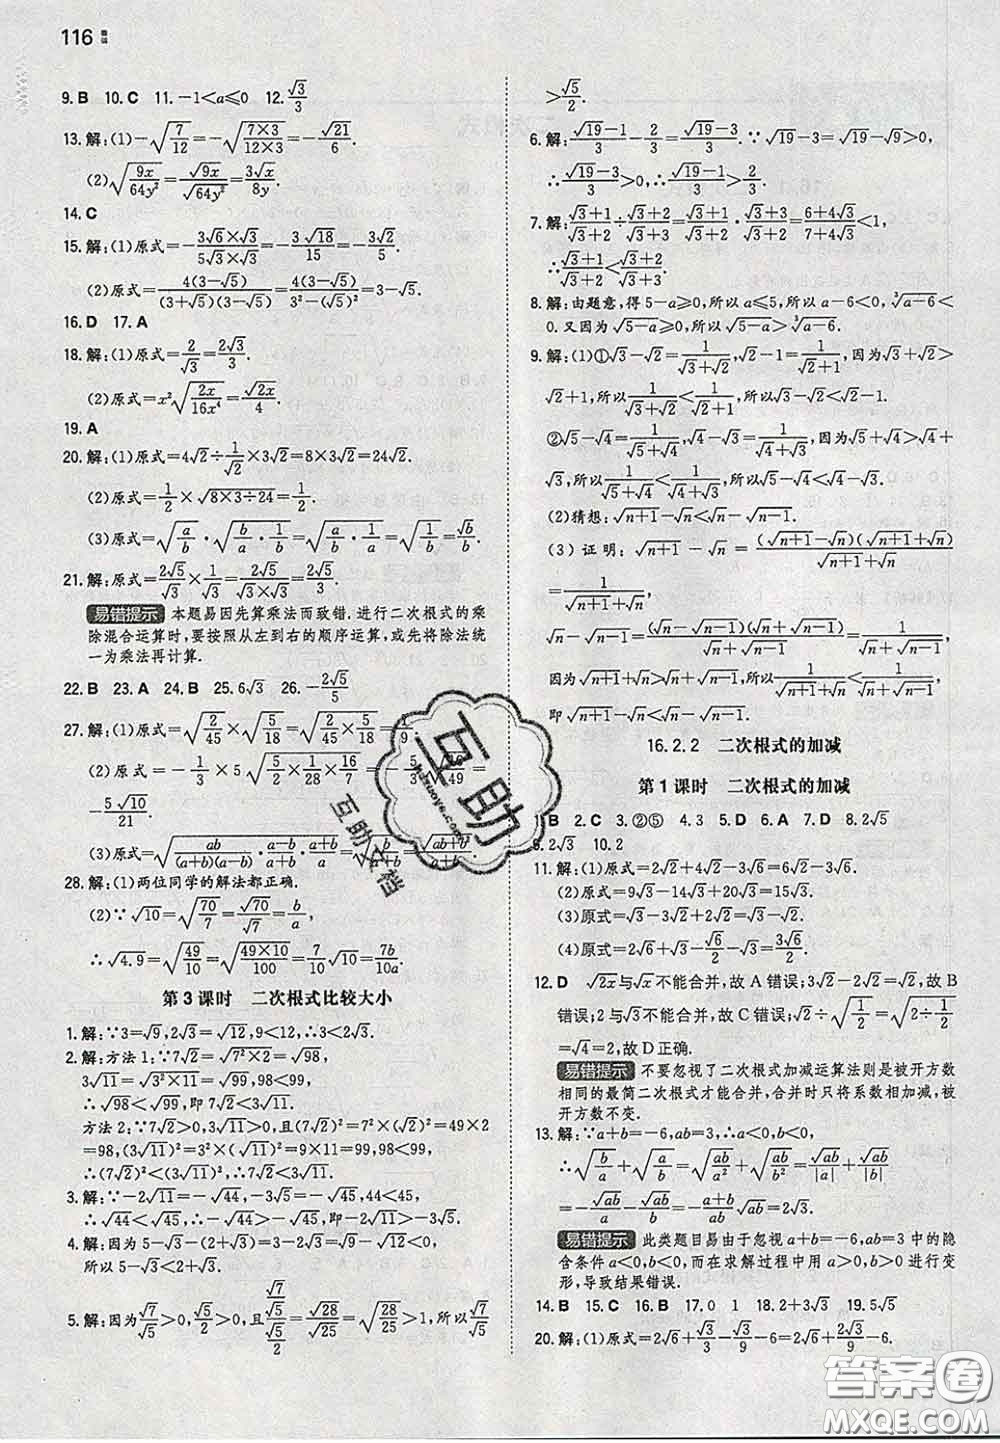 116
9. B  10. C  11. －1<a≤0  12. √3/3
13. 解:(1)－√(7/12)＝－√((7×3)/(12×3))＝－√21/6.
(2)√(9x/64y²)＝√9x/√64y²＝3√x/8y.
14. C
15. 解:(1)原式＝－(3√6×√3)/(5√3×√3)＝－3√18/15＝－3√2/5.
(2)原式＝4(3－√5)/((3＋√5)(3－√5))＝4(3－√5)/(3²－(√5)²)＝3－√5.
16. D  17. A
18. 解:(1)原式＝2/√3＝2√3/3.
(2)原式＝x²√(2x/16x⁴)＝√2x/4.
19. A
20. 解:(1)原式＝4√2÷1/√2×3√2＝8×3√2＝24√2.
(2)原式＝1/2×√(8×3÷24)＝1/2×√1＝1/2.
(3)原式＝√(a/b)·√(b/a·1/b)＝√(a/b·1/a)＝√(1/b)＝√b/b.
21. 解:原式＝2√5/√3×1/√3＝2√5/(√3×√3)＝2√5/3.
易错提示 本题易因先算乘法而致错. 进行二次根式的乘
除混合运算时,要按照从左到右的顺序运算,或先将除法统
一为乘法再计算.
22. B  23. A  24. B  25. 6√3  26. －2√5/5
27. 解:(1)原式＝√(2/45)×√(5/18)＝√(2/45×5/18)＝
(2)原式＝－1/3×5×2√(5/28×16/7)＝
－5√10/21.
(3)原式＝√(ab/((a+b)(a−b))·(a−b)/a·(a+b)/a)＝
28. 解:(1)两位同学的解法都正确.
(2)∵√10＝√(70/7)＝√70/√7＝b/a,
∴√4.9＝√(49/10)＝√((49×10)/100)＝7/10√10＝7b/10a.
第 3 课时  二次根式比较大小
1. 解:∵3＝√9,2√3＝√12,9<12,∴3<2√3.
2. 解:方法 1:∵7√2＝√(7²×2)＝√98,
3√11＝√(3²×11)＝√99,
∴√98<√99,即 7√2<3√11.
方法 2:∵7√2>0,3√11>0,且(7√2)²＝7²×(√2)²＝49×2
＝98,(3√11)²＝3²×(√11)²＝9×11＝99,98<99,
∴(7√2)²<(3√11)²,∴7√2<3√11.
3. 解:∵－2√11＝－√44,－3√5＝－√45,
∴√44<√45,∴－√44>－√45,即－2√11>－3√5.
4. 解:因为 5－√3－(2＋√3)＝3－2√3＝√9－√12<0,
所以 5－√3<2＋√3.
5. 解:因为√7/√5>0,√5/2>0,且(√7/√5)/(√5/2)＝√28/√25＝√(28/25)>1,所以√7/√5
>√5/2.
6. 解:(√19－1)/3－2/3＝(√19－3)/3.∵√19－3>√19－√9>0,
∴(√19－3)/3>0,∴(√19－1)/3>2/3.
7. 解:(√3＋1)/(√3＋2)÷(√3＋2)/(√3＋3)＝(√3＋1)/(√3＋2)·(√3＋3)/(√3＋2)＝(6＋4√3)/(7＋4√3)<1,
∴(√3＋1)/(√3＋2)<(√3＋2)/(√3＋3).
8. 解:由题意,得 5－a≥0,所以 a≤5,所以 a－6<0,∛(a－6)<
0.又因为√(5－a)≥0,所以√(5－a)>∛(a－6).
9. 解:(1)①√3－√2＝1/(√3＋√2),√2－1＝1/(√2＋1),因为√3＋√2>√2
＋1,所以1/(√3＋√2)<1/(√2＋1),所以√3－√2<√2－1.
②√5－√4＝1/(√5＋√4),√4－√3＝1/(√4＋√3),因为√5＋√4>√4＋
√3,所以1/(√5＋√4)<1/(√4＋√3),所以√5－√4<√4－√3.
(2)猜想:√(n＋1)－√n<√n－√(n－1).
(3)证明:√(n＋1)－√n＝(√(n＋1)－√n)(√(n＋1)＋√n)/(√(n＋1)＋√n)
＝1/(√(n＋1)＋√n),
√n－√(n－1)＝(√n－√(n－1))(√n＋√(n－1))/(√n＋√(n－1))＝1/(√n＋√(n－1)),
因为√(n＋1)＋√n>√n＋√(n－1),所以1/(√(n＋1)＋√n)<1/(√n＋√(n－1)),
即√(n＋1)－√n<√n－√(n－1).
16.2.2  二次根式的加减
第 1 课时  二次根式的加减
1. B  2. C  3. ②⑤  4. 3  5. D  6. A  7. D  8. 2√5
9. 2√3  10. 2
11. 解:(1)原式＝2√2＋4√2－3√3＝6√2－3√3.
(2)原式＝9√3－14√3＋20√3＝15√3.
(3)原式＝√3－3√2＋2√2－√3＝－√2.
(4)原式＝2√6＋√3－√6/2－√3＝3√6/2.
12. D  √2x与√x不能合并,故 A 错误;3√2－2√2＝√2,故 B
错误;2 与√3不能合并,故 C 错误;√2÷√(1/2)＝√(2÷1/2)＝
√4＝2,故 D 正确.
易错提示 不要忽视了二次根式加减运算法则是被开方数
相同的最简二次根式才能合并,合并时只将系数相加减,被
开方数不变.
13. 解:∵a＋b＝－6,ab＝3,∴a<0,b<0,
∴√(b/a)＋√(a/b)＝√(ab/a²)＋√(ab/b²)＝√ab/|a|＋√ab/|b|
＝－√ab/a－√ab/b＝－(a＋b)/ab√ab＝2√3.
易错提示 此类题目易由于忽视 a＋b＝－6,ab＝3 中的隐
含条件 a<0,b<0,而在求解过程中没有对根式进行变
形,导致结果错误.
14. B  15. C  16. B  17. 0  1  18. 2＋3√3  19. 5√5
20. 解:(1)原式＝2√6＋√3/3－√3/9－6＝2√6＋2√3/9－6.
互助
互助文档
答案圈
MXQE.COM